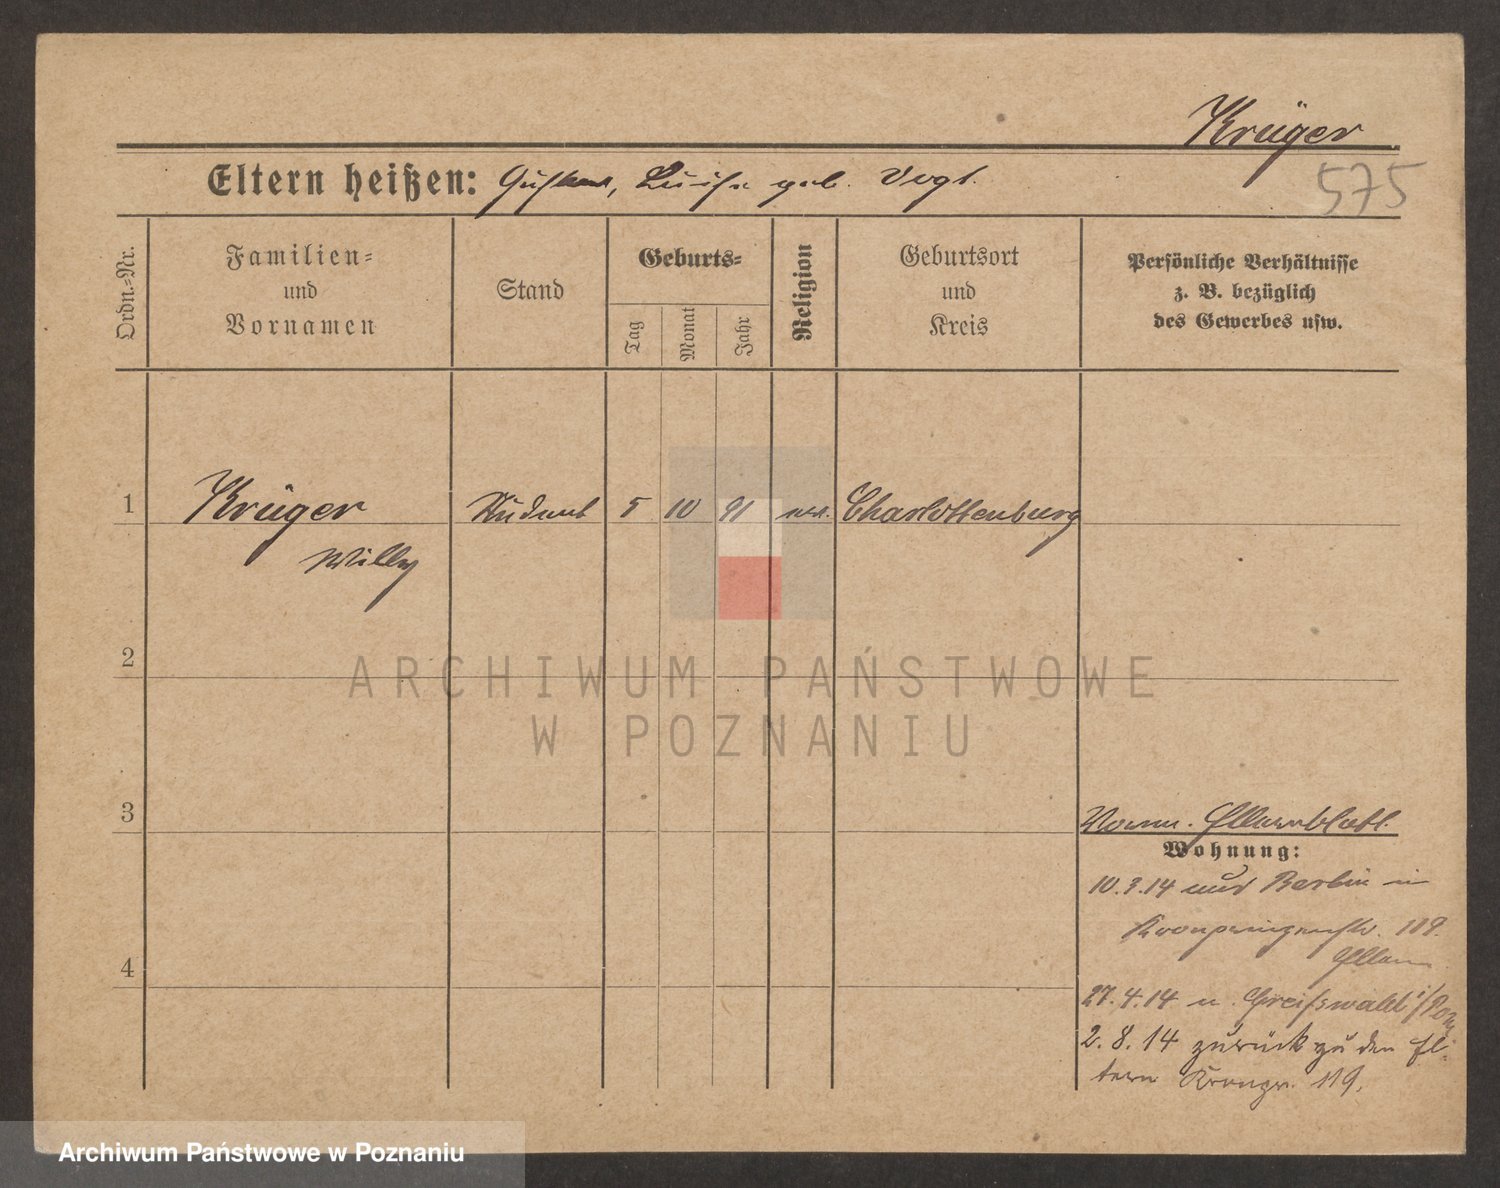 Krüger
575
Eltern heißen: Gustav, Luise geb. Vogt.
Ordn.-Nr.
Familien-
und
Vornamen
Stand
Geburts-
Tag
Monat
Jahr
Religion
Geburtsort
und
Kreis
Persönliche Verhältnisse
z. B. bezüglich
des Gewerbes usw.
1 Krüger Student 5 10 91 ev. Charlottenburg
Willy
2
ARCHIWUM PAŃSTWOWE
W POZNANIU
3
Elternblatt.
Wohnung:
10.3.14 aus Berlin in
Kronprinzenstr. 119.
Eltern
4
27.4.14 n. Greifswald i/Pom
2.8.14 zurück zu den El-
tern Kronpr. 119.
Archiwum Państwowe w Poznaniu